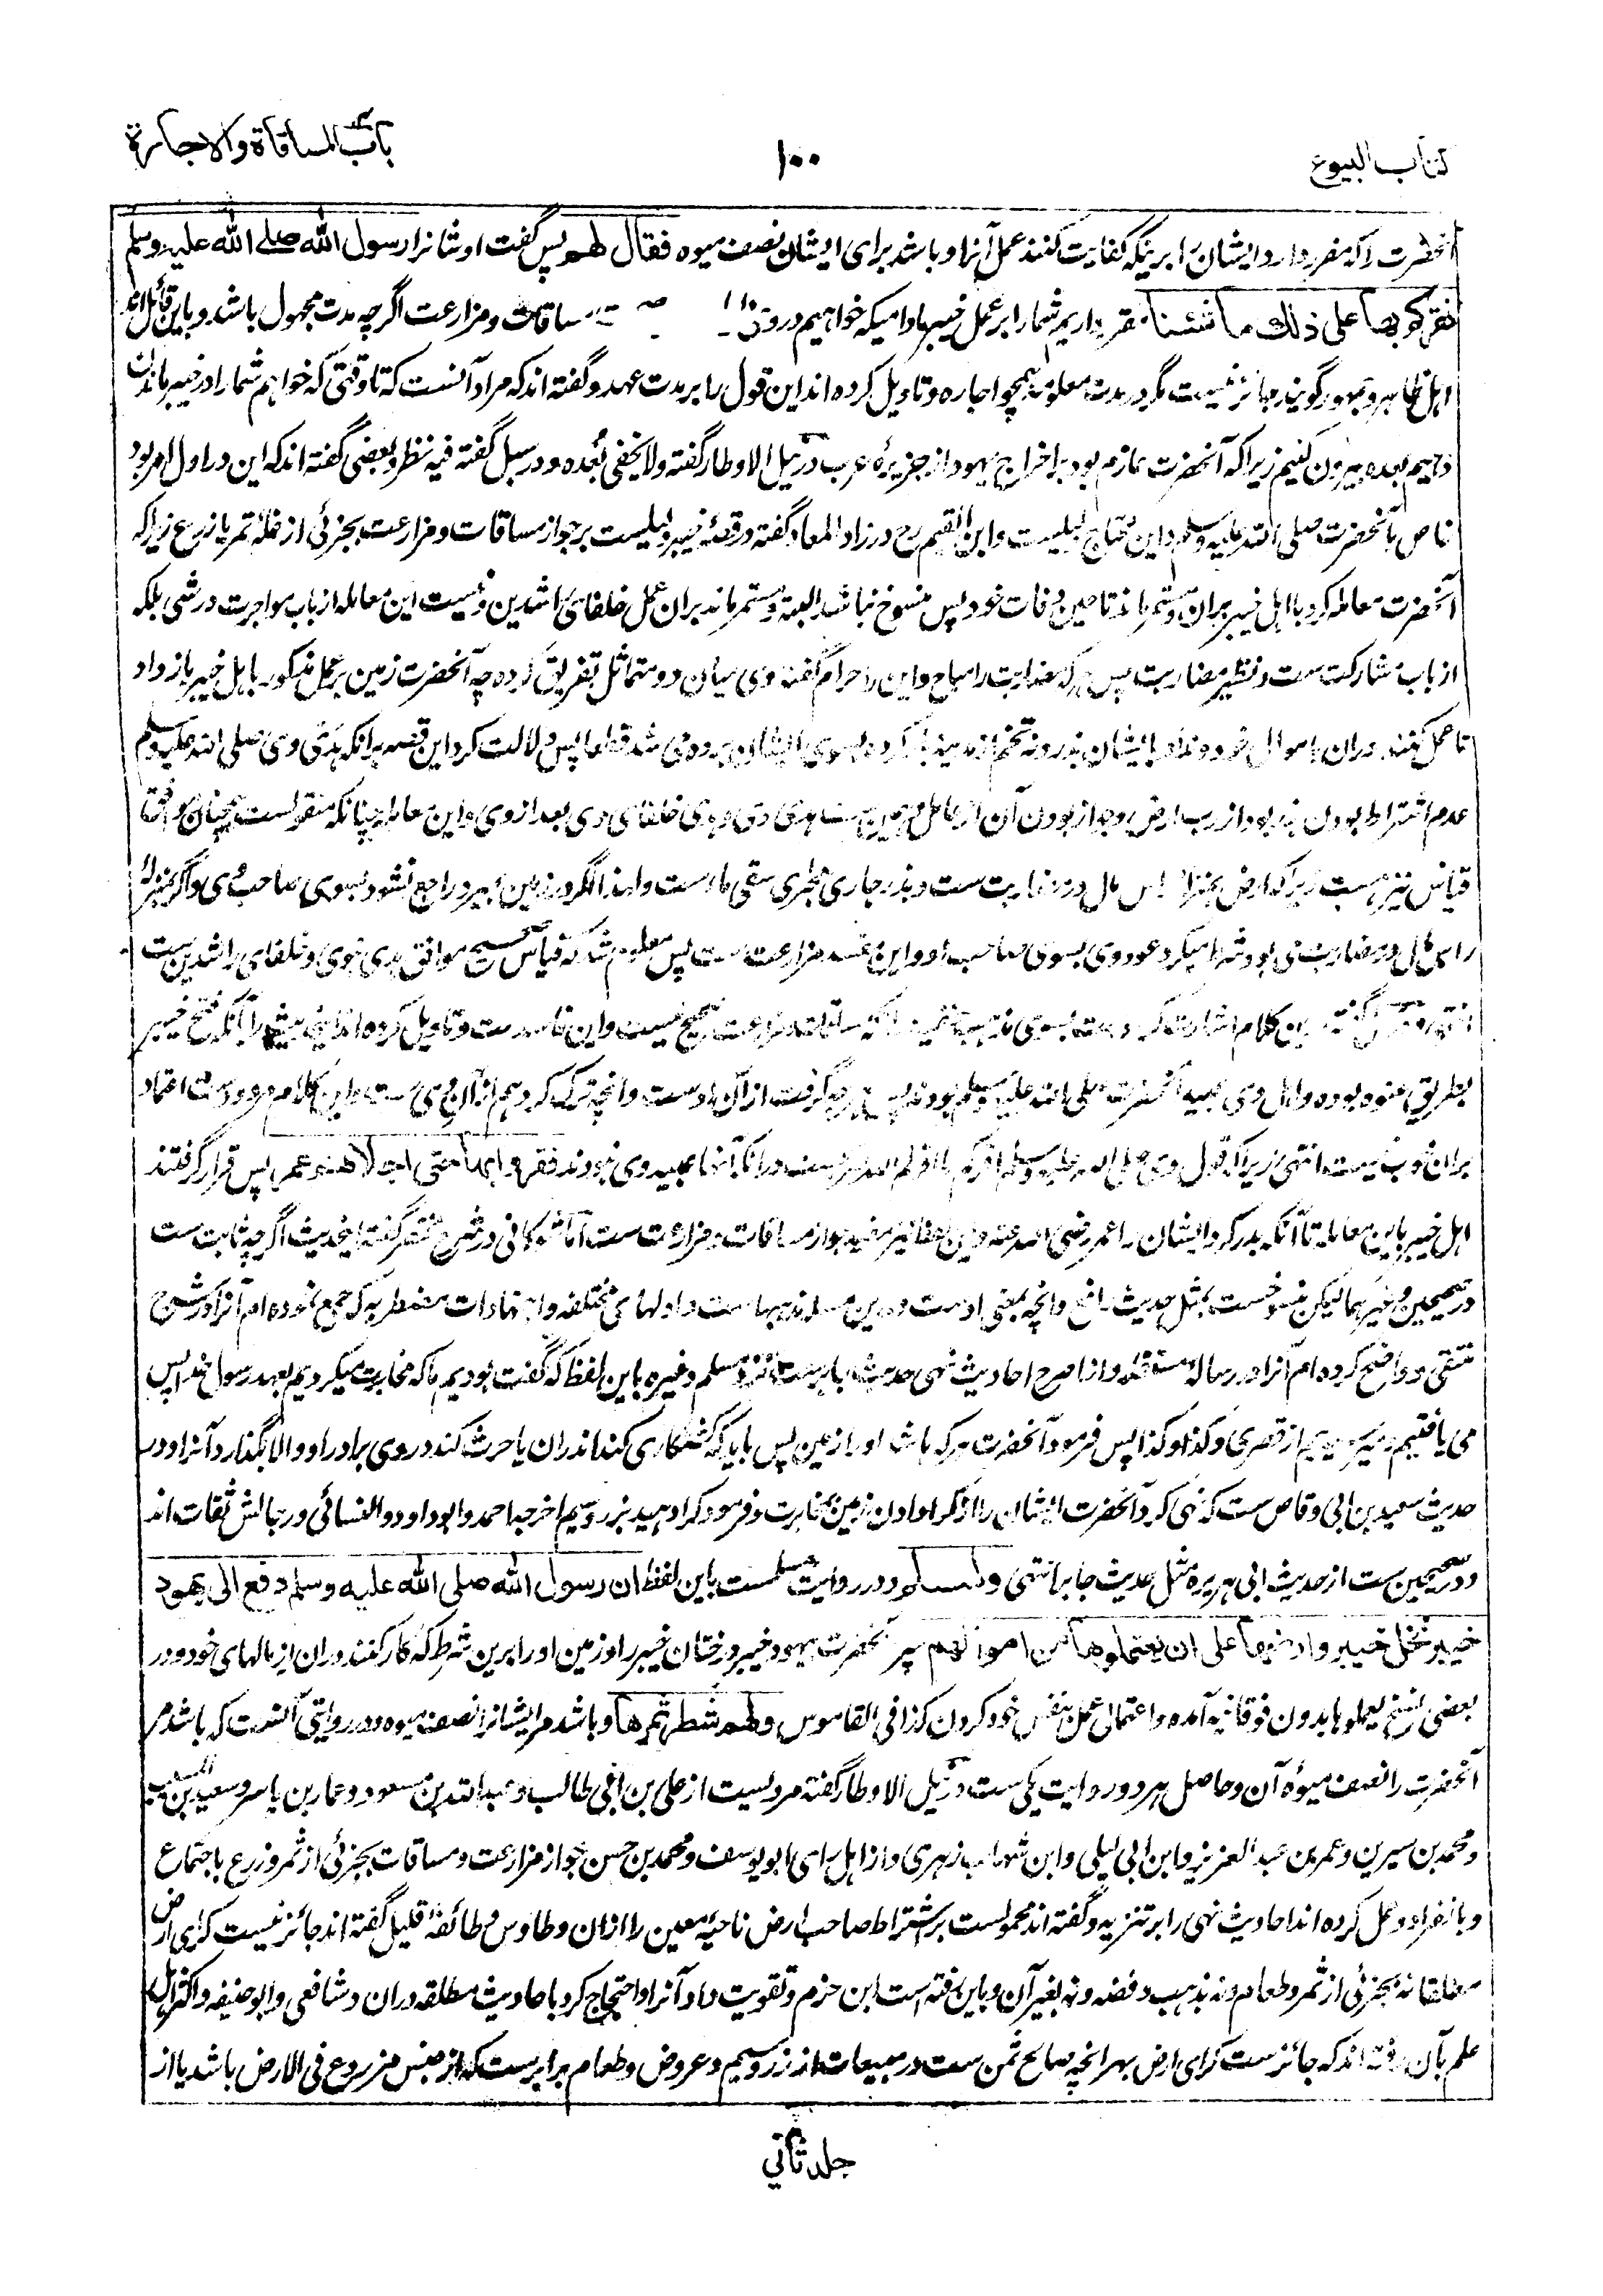 کتاب البیوع
۱۰۰
باب المساقاة والاجارة
آنحضرت را که مقرر دارد ایشان را برینکه کفایت کنند عمل آنرا و باشد برای ایشان نصف میوه فقال لهم پس گفت اوشانرا رسول الله صلے الله علیه وسلم
نقرکم بها علی ذلك ما شئنا مقرر داریم شما را بر عمل خیبر مادامیکه خواهیم مساقات و مزارعت اگرچه مدت مجهول باشد و باین قائل اند
اهل ظاهر و جمهور گویند جائز نیست مگر در مدت معلومه همچو اجاره و تاویل کرده اند این قول را بر مدت عهد و گفته اند که مراد آنست که تا وقتی که خواهم شما را در خیبر ماندن
دهیم بعده بیرون کنیم زیرا که آنحضرت عازم بود بر اخراج یهود از جزیرهٔ عرب در نیل الاوطار گفته ولا یخفی بُعده و در سبل گفته فیه نظر و بعضی گفته اند که این در اول امر بود
خاص بآنحضرت صلی الله علیه وسلم و این محتاج دلیلیست و ابن القیم رح در زاد المعاد گفته در قصهٔ خیبر دلیلیست بر جواز مساقات و مزارعت بجزئی از غلهٔ تمر یا زرع زیرا که
آنحضرت معامله کرد با اهل خیبر بران و مستمر ماند تا حین وفات خود پس منسوخ نباشد البته و مستمر ماند بران عمل خلفای راشدین و نیست این معامله از باب مواجرت در شی بلکه
از باب مشارکت ست و نظیر مضاربت پس هر که مضاربت را مباح و این را حرام گفته وی میان دو متماثل تفریق کرده چه آنحضرت زمین بر عمل مذکور باهل خیبر باز داد
تا عمل کنند دران باموال خود و نداد بایشان بذر و نه تخم از مدینه بار کرده بسوی ایشان برده می شد قطعا پس دلالت کرد این قصه برانکه هدی وی صلی الله علیه وسلم
عدم اشتراط بودن بذر بود از رب ارض و جواز بودن آن از عامل و همین ست هدی وی و هدی خلفای وی بعد از وی و این معامله چنانکه منقولست همچنان موافق
قیاس نیز هست زیرا که ارض بمنزلهٔ راس مال در مضاربت ست و بذر جاری مجرای سقی ماء ست ولهذا اگر در زمین بمیرد راجع نشود بسوی صاحب وی و اگر بمنزلهٔ
راس مال در مضاربت می بود شرط میکرد عود وی بسوی صاحب او و این مفسد مزارعت ست پس معلوم شد که قیاس صحیح موافق هدی نبوی و خلفای راشدین ست
انتهی گفته این کلام اشارت کرده ست بسوی مذهب که مساقات و مزارعت صحیح نیست و این فاسد ست و تاویل کرده اند این حدیث را بآنکه فتح خیبر
بطریق عنوه بوده و اهل وی عبید آنحضرت صلی الله علیه وسلم بودند پس هرچه گرفت از آن اوست و آنچه ترک کرد هم از آن وی ست و این کلام مردود ست اعتماد
بران خوب نیست انتهی زیرا که قول وی صلی الله علیه وسلم اقرکم ما اقرکم الله صریحست درانکه آنها عبید وی نبودند فقروا بها حتی اجلاهم عمر پس قرار گرفتند
اهل خیبر باین معامله تا آنکه بدر کرد ایشان را عمر رضی الله عنه و این لفظ نیز مفید جواز مساقات و مزارعت ست اما شوکانی در شرح مختصر گفته این حدیث اگرچه ثابت ست
در صحیحین و غیرهما لیکن منسوخست بمثل حدیث رافع و آنچه بمعنی اوست و درین مسئله مذهبهاست و ادلهای مختلفه و اجتهادات مضطربه که جمع نموده ام آنرا در شرح
منتقی و واضح کرده ام آنرا در رسالهٔ مستقله و از اصرح احادیث نهی حدیث جابرست نزد مسلم و غیره باین لفظ که گفت بودیم ما که مخابرت میکردیم بعهد رسول خدا پس
می یافتیم از قصری و کذا و کذا پس فرمود آنحضرت هر که باشد او را زمین پس باید که کشتکاری کند اندران یا حرث کند دروی برادر او والا بگذارد آنرا و در
حدیث سعد بن ابی وقاص ست که نهی کرد آنحضرت ایشان را از کرا دادن زمین بمخابرت و فرمود کرا دهید بزر و سیم اخرجه احمد وابوداود والنسائی و رجالش ثقات اند
و در صحیحین ست از حدیث ابی هریره مثل حدیث جابر انتهی ولمسلم و در روایت مسلمست باین لفظ ان رسول الله صلی الله علیه وسلم دفع الی یهود
خیبر نخل خیبر وارضها علی ان یعتملوها من اموالهم سپرد آنحضرت بیهود خیبر درختان خیبر را و زمین او را برین شرط که کار کنند دران از مالهای خود و در
بعضی نسخ یعملوها بدون فوقانیه آمده و اعتمال عمل بنفس خود کردن کذا فی القاموس ولهم شطر ثمرها و باشد مر ایشانرا نصف میوه و در روایتی آنست که باشد مر
آنحضرت را نصف میوهٔ آن و حاصل هر دو روایت یکی ست در نیل الاوطار گفته مرویست از علی بن ابی طالب و عبدالله بن مسعود و عمار بن یاسر و سعید بن المسیب
و محمد بن سیرین و عمر بن عبدالعزیز و ابن ابی لیلی و ابن شهاب زهری و از اهل رای ابو یوسف و محمد بن حسن جواز مزارعت و مساقات بجزئی از ثمر و زرع باجتماع
و بانفراد و عمل کرده اند احادیث نهی را بر تنزیه و گفته اند محمولست بر اشتراط صاحب ارض ناحیهٔ معین را ازان و طاوس و طائفهٔ قلیل گفته اند جائز نیست کرای ارض
مطلقا نه بجزئی از ثمر و طعام و نه بذهب و فضه و نه بغیر آن و باین رفته است ابن حزم و تقویت داد آنرا و احتجاج کرد باحادیث مطلقه دران و شافعی و ابو حنیفه و اکثر اهل
علم بآن رفته اند که جائزست کرای ارض بهر آنچه صالح ثمن ست در مبیعات از زر و سیم و عروض و طعام برابرست که از جنس مزروع فی الارض باشد یا از
جلد ثانی